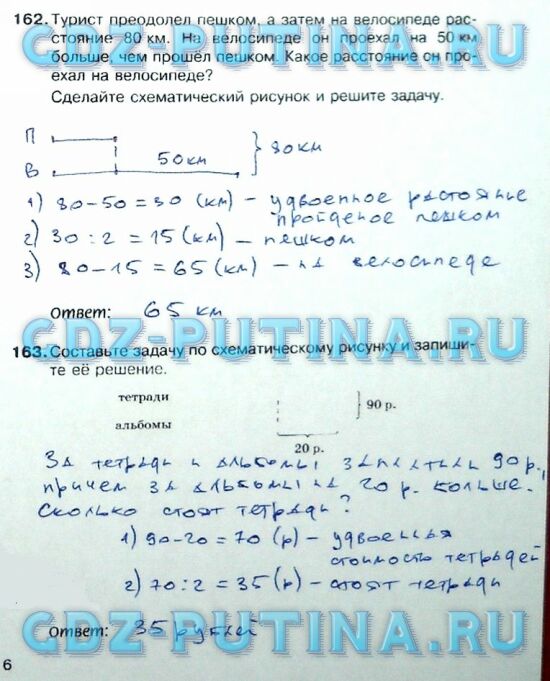 162. Турист преодолел пешком, а затем на велосипеде рас-
стояние 80 км. На велосипеде он проехал на 50 км
больше, чем прошёл пешком. Какое расстояние он про-
ехал на велосипеде?
Сделайте схематический рисунок и решите задачу.
GDZ-PUTINA.RU
П
50км
80км
В
1) 80-50=30 (км) - удвоенное растояние
пройденое пешком
2) 30:2=15(км) - пешком
3) 80-15=65(км) - на велосипеде
GDZ-PUTINA.RU
Ответ: 65 км
GDZ-PUTINA.RU
163. Составьте задачу по схематическому рисунку и запиши-
те её решение.
тетради
90 р.
альбомы
20 р.
За тетради и альбомы заплатили 90р,
причем за альбомы на 20 р. больше.
Сколько стоят тетради?
1) 90-20=70 (р) - удвоенная
стоимость тетрадей
2) 70:2=35(р) - стоят тетради
GDZ-PUTINA.RU
Ответ: 35 рублей
6